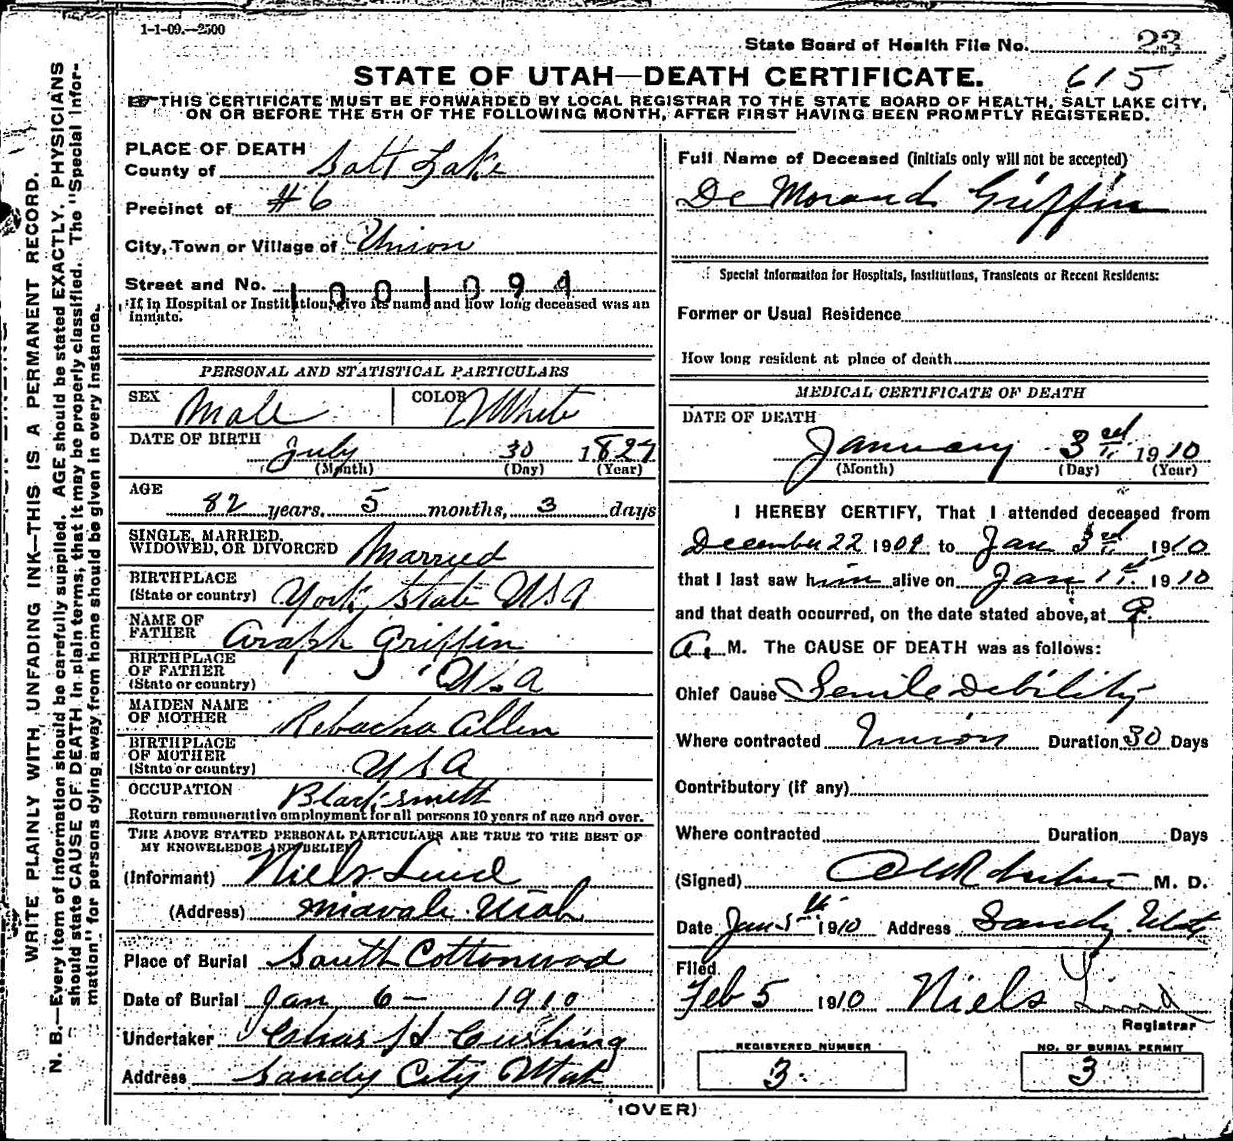 1-1-09.—2500
State Board of Health File No. 23
STATE OF UTAH—DEATH CERTIFICATE. 615
THIS CERTIFICATE MUST BE FORWARDED BY LOCAL REGISTRAR TO THE STATE BOARD OF HEALTH, SALT LAKE CITY,
ON OR BEFORE THE 5TH OF THE FOLLOWING MONTH, AFTER FIRST HAVING BEEN PROMPTLY REGISTERED.
WRITE PLAINLY WITH UNFADING INK—THIS IS A PERMANENT RECORD.
N. B.—Every item of information should be carefully supplied. AGE should be stated EXACTLY. PHYSICIANS
should state CAUSE OF DEATH in plain terms, that it may be properly classified. The "Special Infor-
mation" for persons dying away from home should be given in every instance.
PLACE OF DEATH
County of Salt Lake
Precinct of #6
City, Town or Village of Union
Street and No. 1001094
If in Hospital or Institution, give its name and how long deceased was an
inmate.
PERSONAL AND STATISTICAL PARTICULARS
SEX Male COLOR White
DATE OF BIRTH July 30 1827
(Month) (Day) (Year)
AGE
82 years, 5 months, 3 days
SINGLE, MARRIED,
WIDOWED, OR DIVORCED Married
BIRTHPLACE
(State or country) York State USA
NAME OF
FATHER Griffin
BIRTHPLACE
OF FATHER
(State or country) USA
MAIDEN NAME
OF MOTHER Rebacha Allen
BIRTHPLACE
OF MOTHER
(State or country) USA
OCCUPATION Blacksmith
Return remunerative employment for all persons 10 years of age and over.
THE ABOVE STATED PERSONAL PARTICULARS ARE TRUE TO THE BEST OF
MY KNOWLEDGE AND BELIEF
(Informant) Niels Lind
(Address) Midvale Utah
Place of Burial South Cottonwood
Date of Burial Jan 6— 1910
Undertaker Chas H Cushing
Address Sandy City Utah
Full Name of Deceased (Initials only will not be accepted)
De Morand Griffin
Special Information for Hospitals, Institutions, Transients or Recent Residents:
Former or Usual Residence
How long resident at place of death
MEDICAL CERTIFICATE OF DEATH
DATE OF DEATH
January 3rd 1910
(Month) (Day) (Year)
I HEREBY CERTIFY, That I attended deceased from
December 22 1909 to Jan 3rd 1910
that I last saw him alive on Jan 1st. 1910
and that death occurred, on the date stated above, at 9.
A. M. The CAUSE OF DEATH was as follows:
Chief Cause Senile Debility
Where contracted Union Duration 30 Days
Contributory (if any)
Where contracted Duration Days
(Signed) M. D.
Date Jan 5th 1910 Address Sandy Utah
Filed
Feb 5 1910 Niels Lind
Registrar
REGISTERED NUMBER
3.
NO. OF BURIAL PERMIT
3
(OVER)